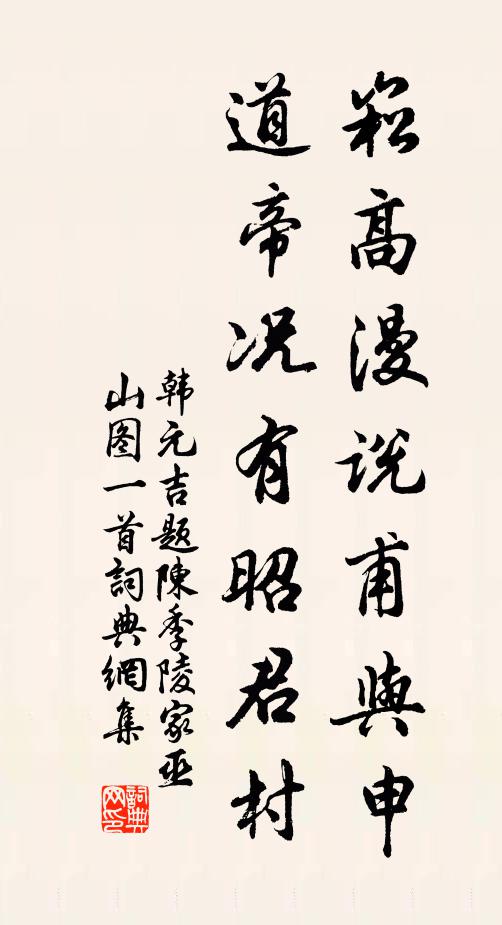 崧高漫説甫與申
道帝况有昭君村
韩元吉题陳季陵家巫
山图一首詞典網集
詞典
网印